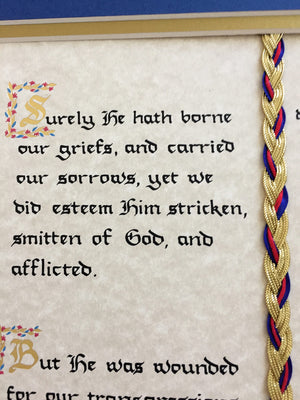 Surely He hath borne
our griefs, and carried
our sorrows, yet we
did esteem Him stricken,
smitten of God, and
afflicted.
But He was wounded
for our transgressions